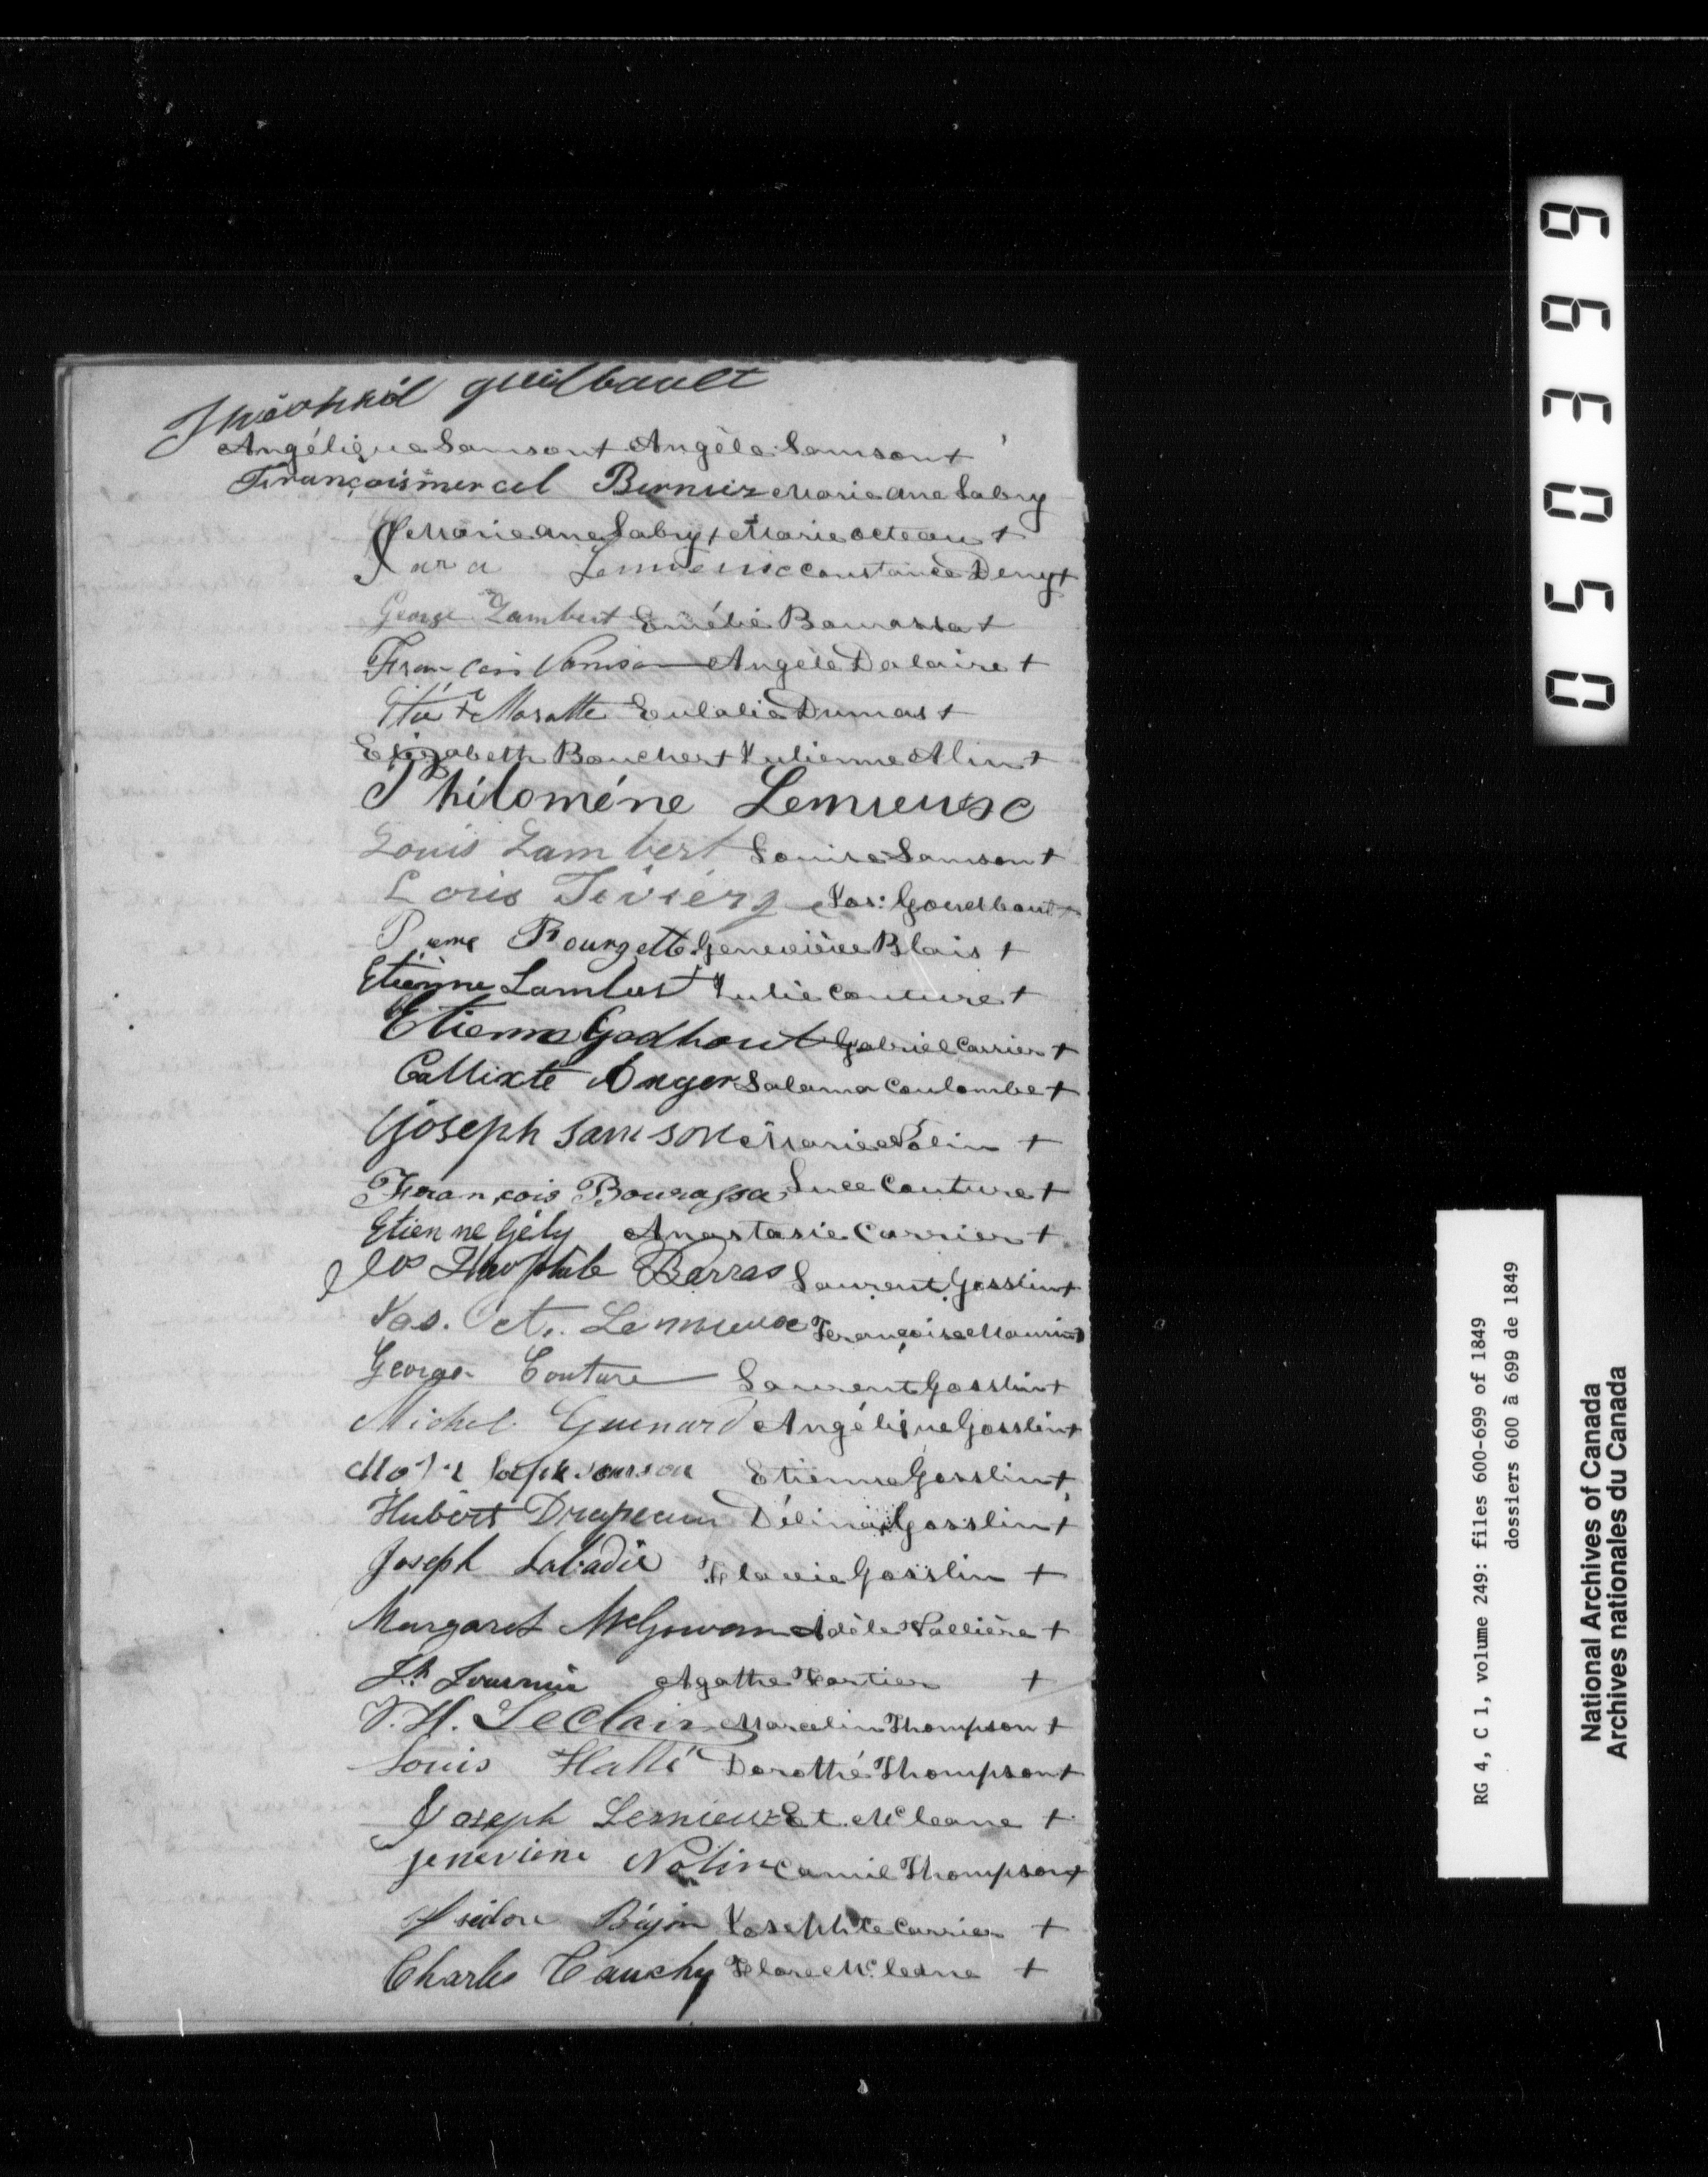 Théophil guilbault
Angélique Samson + Angèle Samson +
François mercel Bernier Marie ane Labry
Marie ane Labry + Marie octeau +
Lemieux constance Deny +
George Lambert Emélie Bourassa +
François Samson Angèle Dalaire +
Eulalie Dumas +
Elizabeth Boucher + Julienne Alin +
Philoméne Lemieux
Louis Lambert Louise Samson +
Louis Tiviérg Jos: Goudbout +
Pierre Bourgette Geneviève Blais +
Etienne Lambert Julie couture +
Etienne Godbout Gabriel Carrier +
Callixte Anger Salama Coulombe +
Joseph Samson Marie Polin +
François Bourassa Luce Couture +
Etienne Gély Anastasie Carrier +
Théophile Barras Laurent Gosslin +
Jos. Oct. Lemieux Françoise Maurin
George Couture Laurent Gosslin +
Michel Guenard Angélique Gosslin +
Etienne Gosslin +
Hubert Drapeau Délina Gosslin +
Joseph Labadie Flavie Gosslin +
Margaret McGowan Adèle Vallière +
Agathe Fortier +
Leclair Marcelin Thompson +
Louis Hallé Dorothé Thompson +
Joseph Lemieux Et. McLeane +
genevieve Nolin Camil Thompson +
Isidore Bégin Josephte Carrier +
Charles Cauchy Flore McLeane +
050366
RG 4, C 1, volume 249: files 600-699 of 1849
dossiers 600 à 699 de 1849
National Archives of Canada
Archives nationales du Canada